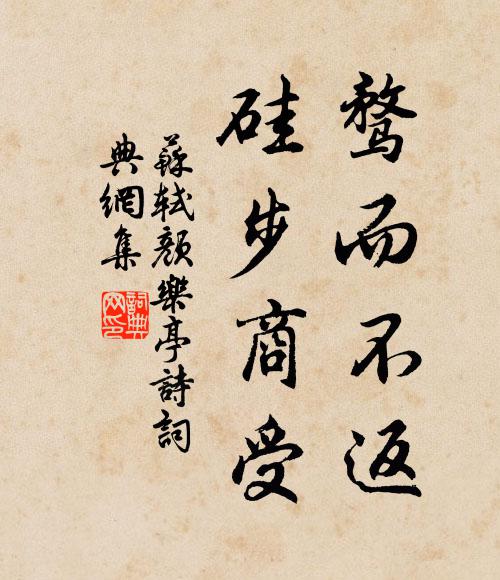 鶩而不返
硅步商受
蘇軾顏樂亭詩詞
典網集
詞典
网印